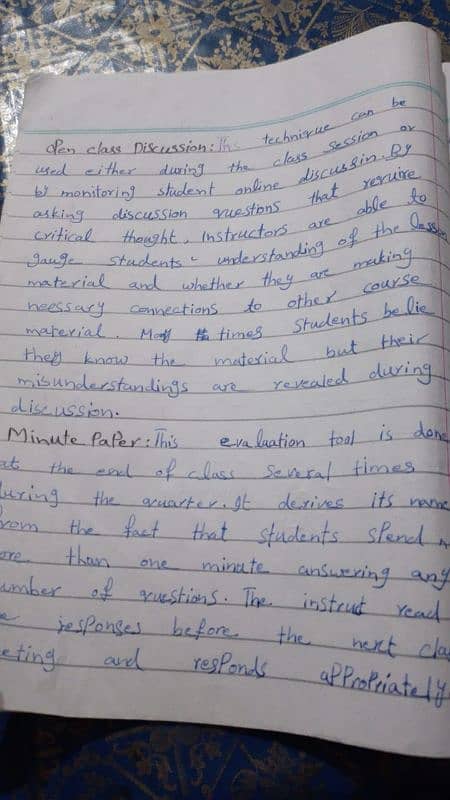 Open class Discussion: This technique can be
used either during the class session or
by monitoring student online discussin. By
asking discussion questions that require
critical thought, Instructors are able to
gauge students understanding of the lesson
material and whether they are making
neessary connections to other course
material. Many times students belie
they know the material but their
misunderstandings are revealed during
discussion.
Minute Paper: This evaluation tool is done
at the end of class several times
during the quarter. It derives its name
from the fact that students spend n
ore than one minute answering any
umber of questions. The instruct read
e responses before the next cla
eting and responds appropriately